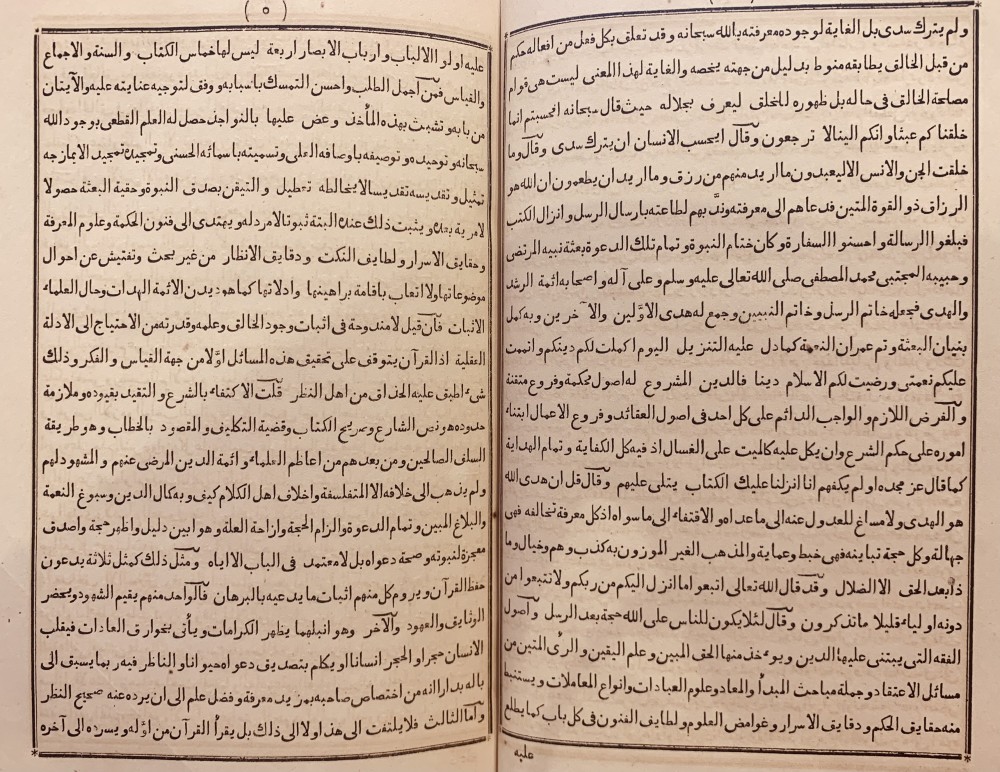 ولم يترك سدى بل الغاية لوجوده معرفته بالله سبحانه وقد تعلق بكل فعل من افعاله حكم
من قبل الخالق يطابقه منوط بدليل من جهته يخصه والغاية لهذا المعنى ليست هى قوام
مصلحة الخالق فى حاله بل ظهوره للخلق ليعرف بجلاله حيث قال سبحانه افحسبتم انما
خلقنا كم عبثا وانكم الينا لا ترجعون وقال ايحسب الانسان ان يترك سدى وقال وما
خلقت الجن والانس الا ليعبدون ما اريد منهم من رزق وما اريد ان يطعمون ان الله هو
الرزاق ذو القوة المتين فدعاهم الى معرفته وندبهم لطاعته بارسال الرسل وانزال الكتب
فبلغوا الرسالة واحسنوا السفارة وكان ختام النبوة وتمام تلك الدعوة بعثة نبيه المرتضى
وحبيبه المجتبى محمد المصطفى صلى الله تعالى عليه وسلم وعلى آله واصحابه ائمة الرشد
والهدى فجعله خاتم الرسل وخاتم النبيين وجمع له هدى الاولين والآخرين وبه كمل
بنيان البعثة وتم عمران النعمة كما دل عليه التنزيل اليوم اكملت لكم دينكم واتممت
عليكم نعمتى ورضيت لكم الاسلام دينا فالدين المشروع له اصول محكمة وفروع متقنة
والفرض اللازم والواجب الدائم على كل احد فى اصول العقائد وفروع الاعمال ابتناء
اموره على حكم الشرع وان يكل عليه كالميت على الغسال اذ فيه كل الكفاية وتمام الهداية
كما قال عز مجده او لم يكفهم انا انزلنا عليك الكتاب يتلى عليهم وقال قل ان هدى الله
هو الهدى ولا مساغ للعدول عنه الى ما عداه والاقتفاء الى ما سواه اذ كل معرفة تخالفه فهى
جهالة وكل حجة تباينه فهى خبط وعماية والمذهب الغير الموزون به كذب ووهم وخيال وما
ذا بعد الحق الا الضلال وقد قال الله تعالى اتبعوا ما انزل اليكم من ربكم ولا تتبعوا من
دونه اولياء قليلا ما تذكرون وقال لئلا يكون للناس على الله حجة بعد الرسل واصول
الفقه التى يبتنى عليها الدين ويؤخذ منها الحق المبين وعلم اليقين والرأى المتين من
مسائل الاعتقاد وجملة مباحث المبدأ والمعاد وعلوم العبادات وانواع المعاملات ويستنبط
منه حقايق الحكم ودقايق الاسرار وغوامض العلوم ولطايف الفنون فى كل باب كما يطلع
عليه
( ٥ )
عليه اولوا الالباب وارباب الابصار اربعة ليس لها خامس الكتاب والسنة والاجماع
والقياس فمن اجمل الطلب واحسن التمسك باسبابه ووفق لتوجيه عنايته عليه والآيتان
من بابه وتشبث بهذه المأخذ وعض عليها بالنواجذ حصل له العلم القطعى بوجود الله
سبحانه وتوحيده وتوصيفه باوصافه العلى وتسميته باسمائه الحسنى وتمجيده تمجيدا لا يمازجه
تمثيل وتقديسه تقديسا لا يخالطه تعطيل والتيقن بصدق النبوة وحقية البعثة حصولا
لا مرية بعده ويثبت ذلك عنده البتة ثبوتا لا مرد له ويهتدى الى فنون الحكمة وعلوم المعرفة
وحقايق الاسرار ولطايف النكت ودقايق الانظار من غير بحث وتفتيش عن احوال
موضوعاتها ولا اتعاب باقامة براهينها وادلاتها كما هو ديدن الائمة الهدات وحال العلماء
الاثبات فان قيل لا مندوحة فى اثبات وجود الخالق وعلمه وقدرته من الاحتياج الى الادلة
العقلية اذ القرآن يتوقف على تحقيق هذه المسائل اولا من جهة القياس والفكر وذلك
شىء اطبق عليه الحذاق من اهل النظر قلت الاكتفاء بالشرع والتقيد بقيوده وملازمة
حدوده هو نص الشارع وصريح الكتاب وقضية التكليف والمقصود بالخطاب وهو طريقة
السلف الصالحين ومن بعدهم من اعاظم العلماء وائمة الدين المرضى عنهم والمشهود لهم
ولم يذهب الى خلافه الا المتفلسفة واخلاف اهل الكلام كيف وبه كمال الدين وسبوغ النعمة
والبلاغ المبين وتمام الدعوة والزام الحجة وازاحة العلة وهو ابين دليل واظهر حجة واصدق
معجزة لنبوته وصحة دعواه بل لا معتمد فى الباب الا اياه ومثل ذلك كمثل ثلاثة يدعون
حفظ القرآن ويروم كل منهم اثبات ما يدعيه بالبرهان فالواحد منهم يقيم الشهود ويحضر
الوثايق والعهود والآخر وهو انبلهما يظهر الكرامات ويأتى بخوارق العادات فيقلب
الانسان حجرا والحجر انسانا او يكلم بتصديق دعواه حيوانا والناظر فيه ربما يسبق الى
باله بدارا انه من اختصاص صاحبه بمزيد معرفة وفضل علم الى ان يرده عنه صحيح النظر
واما الثالث فلا يلتفت الى هذا ولا الى ذلك بل يقرأ القرآن من اوله ويسرده الى آخره